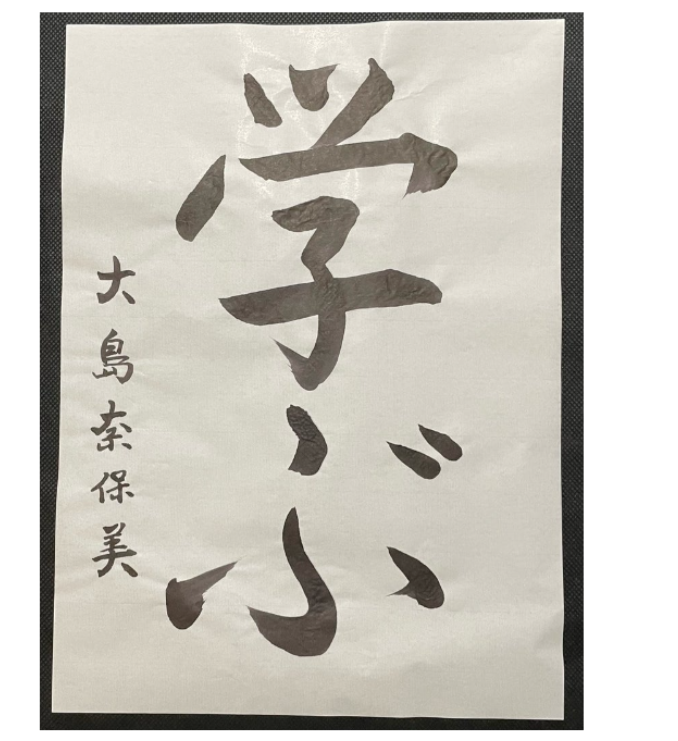 学ぶ
大島奈保美